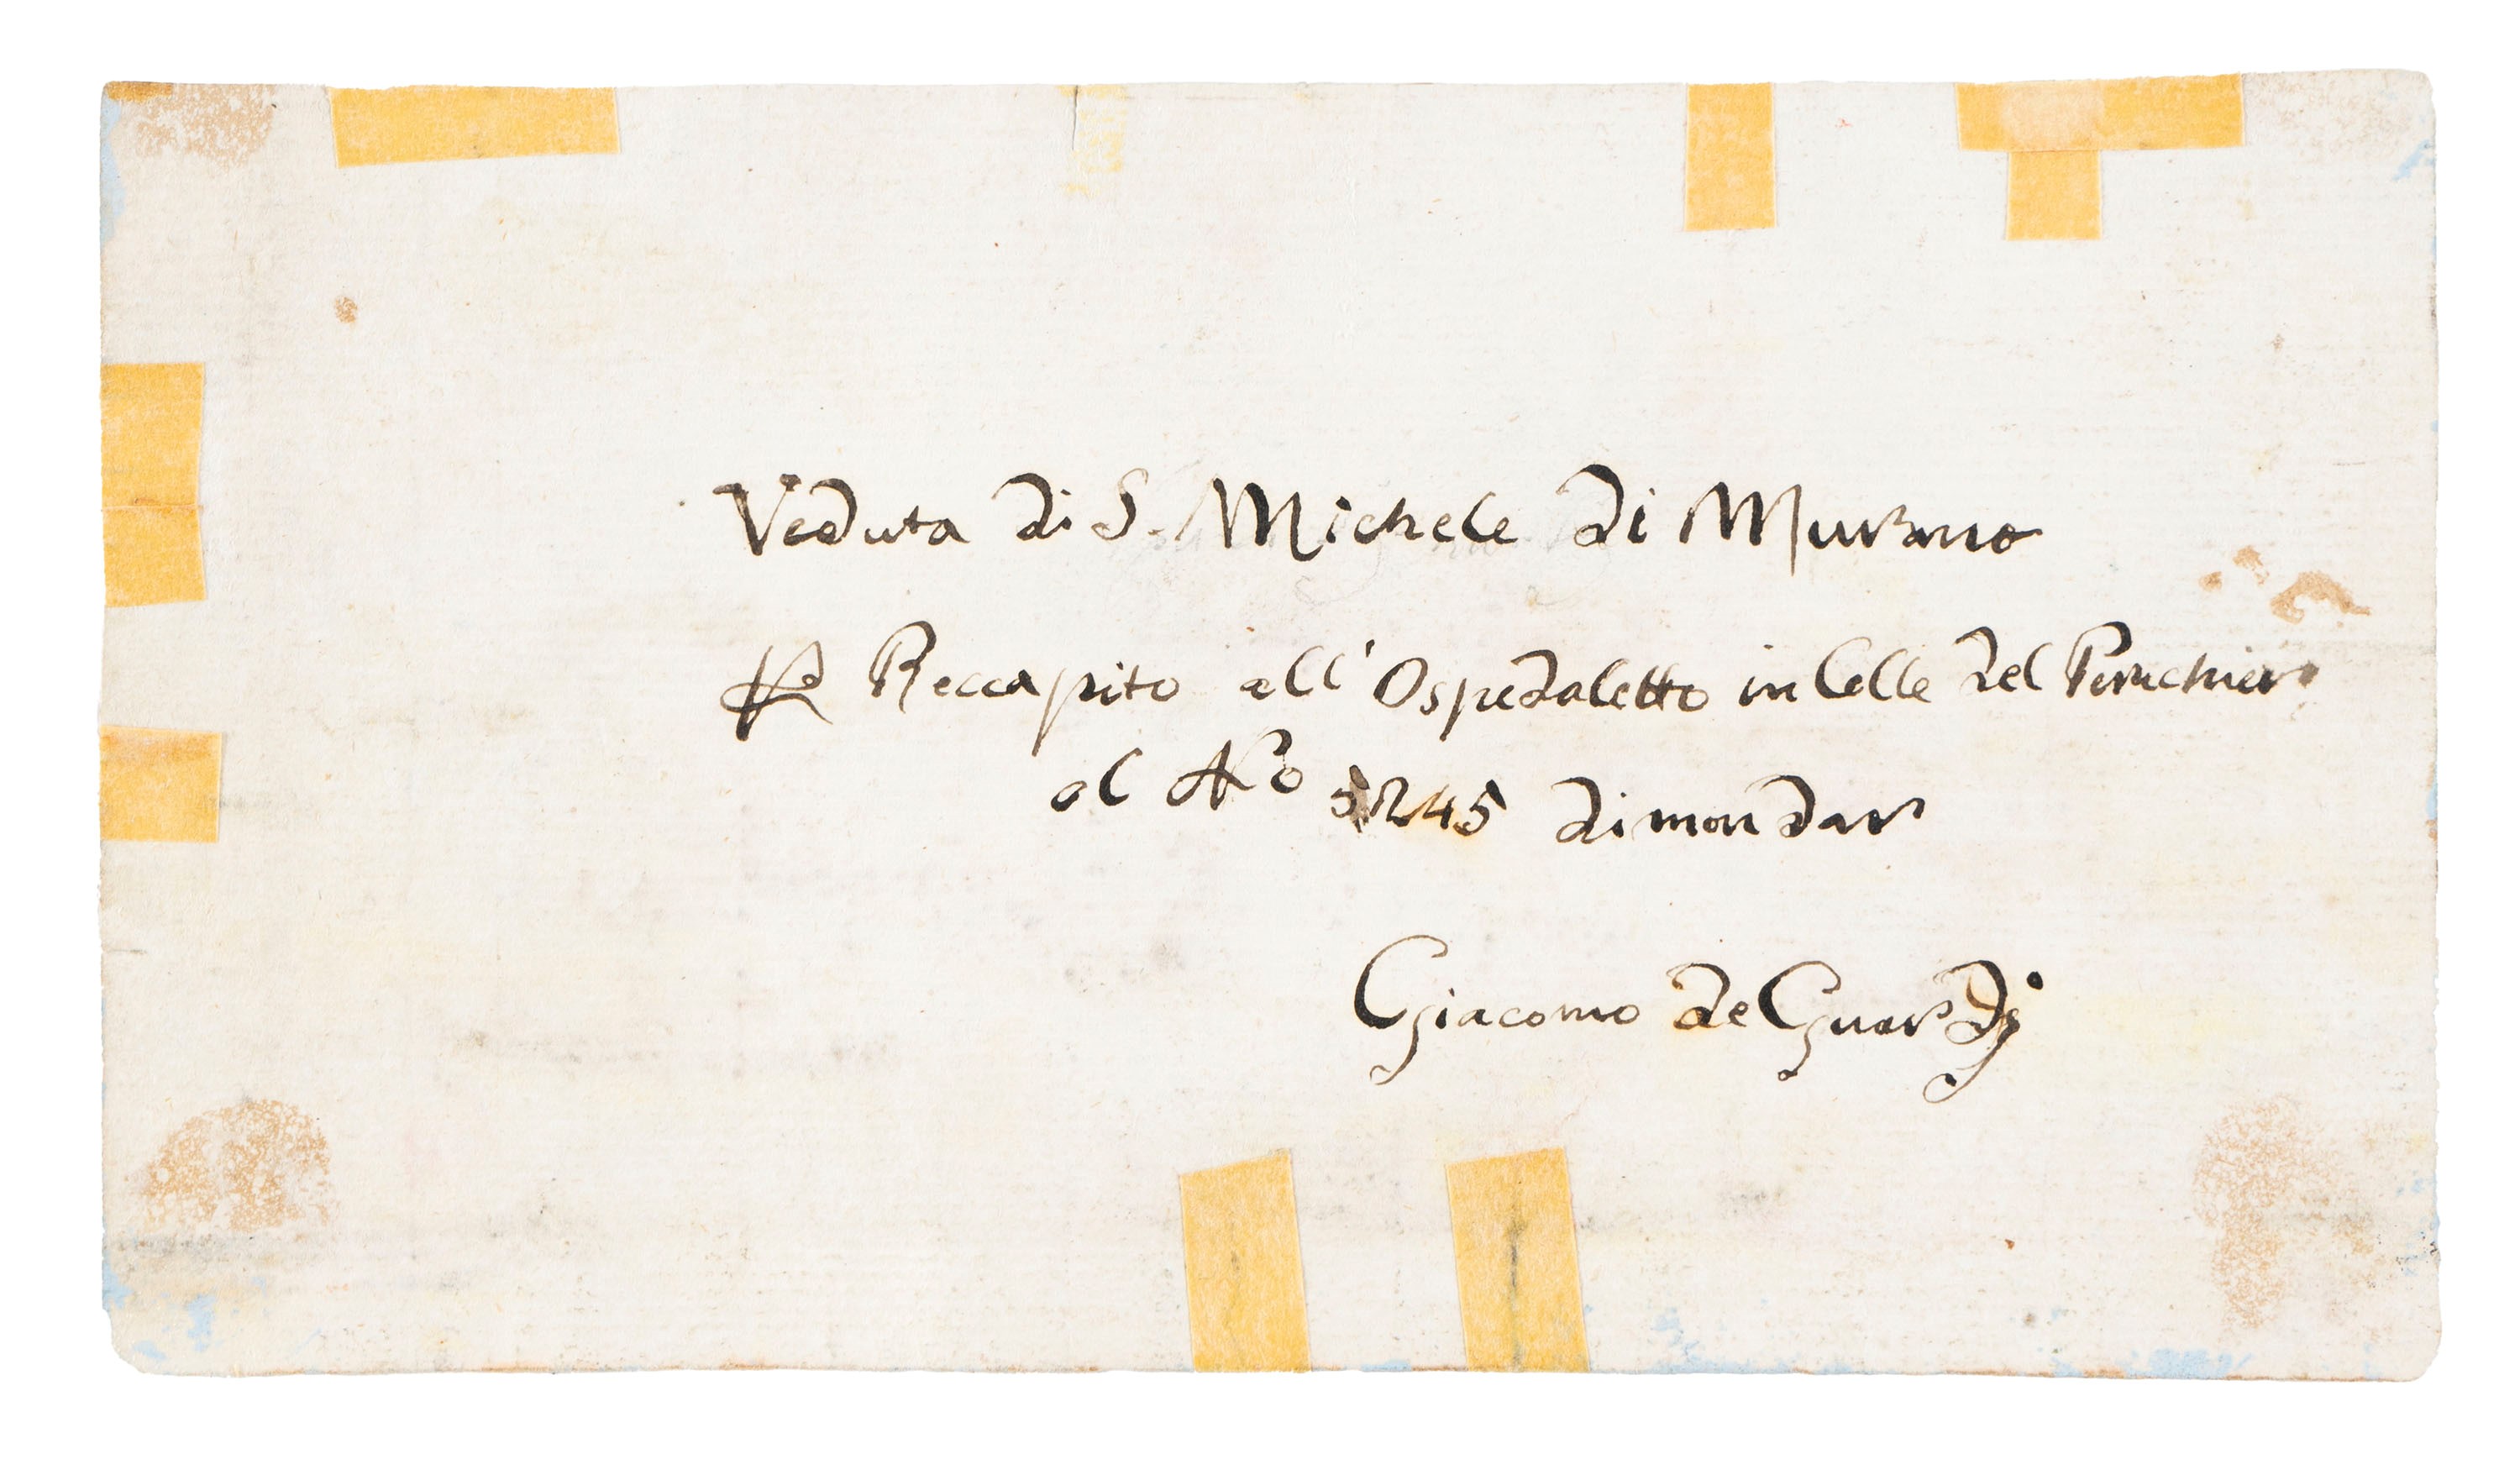 Veduta di S. Michele di Murano
Pr Reccapito all' Ospedaletto in Calle del Peruchier
al No 5245 dimandar
Giacomo de Guardi